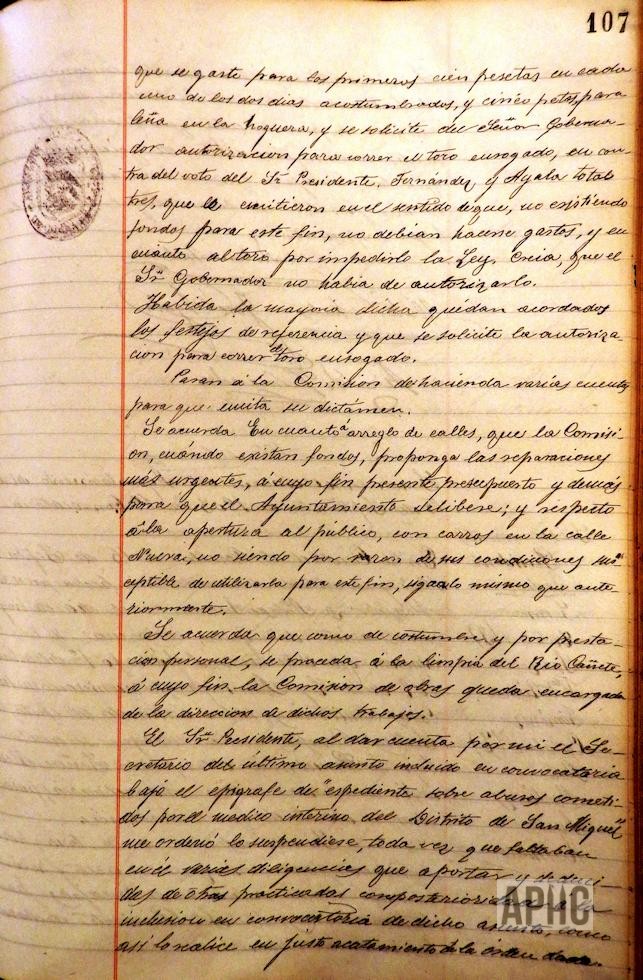 107
que se gaste para los primeros cien pesetas en cada
uno de los dos dias acostumbrados, y cinco ptas para
leña en la hoguera, y se solicite del Señor Goberna-
dor autorizacion para correr el toro ensogado, en con-
tra del voto del Sr Presidente, Fernández y Ayala total
tres, que le emitieron en el sentido de que, no existiendo
fondos para este fin, no debian hacerse gastos, y en
cuanto al toro por impedirlo la Ley, creia, que el
Sr Gobernador no habia de autorizarlo.
Habida la mayoria dicha quedan acordados
los festejos de referencia y que se solicite la autoriza-
cion para correr el toro ensogado.
Pasan á la Comision de hacienda varias cuentas
para que emita su dictámen.
Se acuerda En cuanto á arreglo de calles, que la Comisi-
on, cuándo existan fondos, proponga las reparaciones
mas urgentes, á cuyo fin presente presupuesto y demas
para que el Ayuntamiento delibere; y respecto
á la apertura al público, con carros en la calle
Nueva, no siendo por razon de sus condiciones sus-
ceptible de utilizarla para este fin, siga lo mismo que ante-
riormente.
Se acuerda que como de costumbre y por presta-
cion personal, se proceda á la limpia del Rio Cañete,
á cuyo fin la Comision de obras queda encargada
de la direccion de dichos trabajos.
El Sr Presidente, al dar cuenta por mi el Se-
cretario del último asunto incluido en convocatoria
bajo el epigrafe de "espediente sobre abusos cometi-
dos por el medico interino del Distrito de San Miguel"
me ordenó lo suspendiese, toda vez que faltaban
en él varias diligencias que aportar y
das de otras practicadas con posterioridad á la
inclusion en convocatoria de dicho asunto, como
asi lo realice en justo acatamiento á la órden dada.
APHC